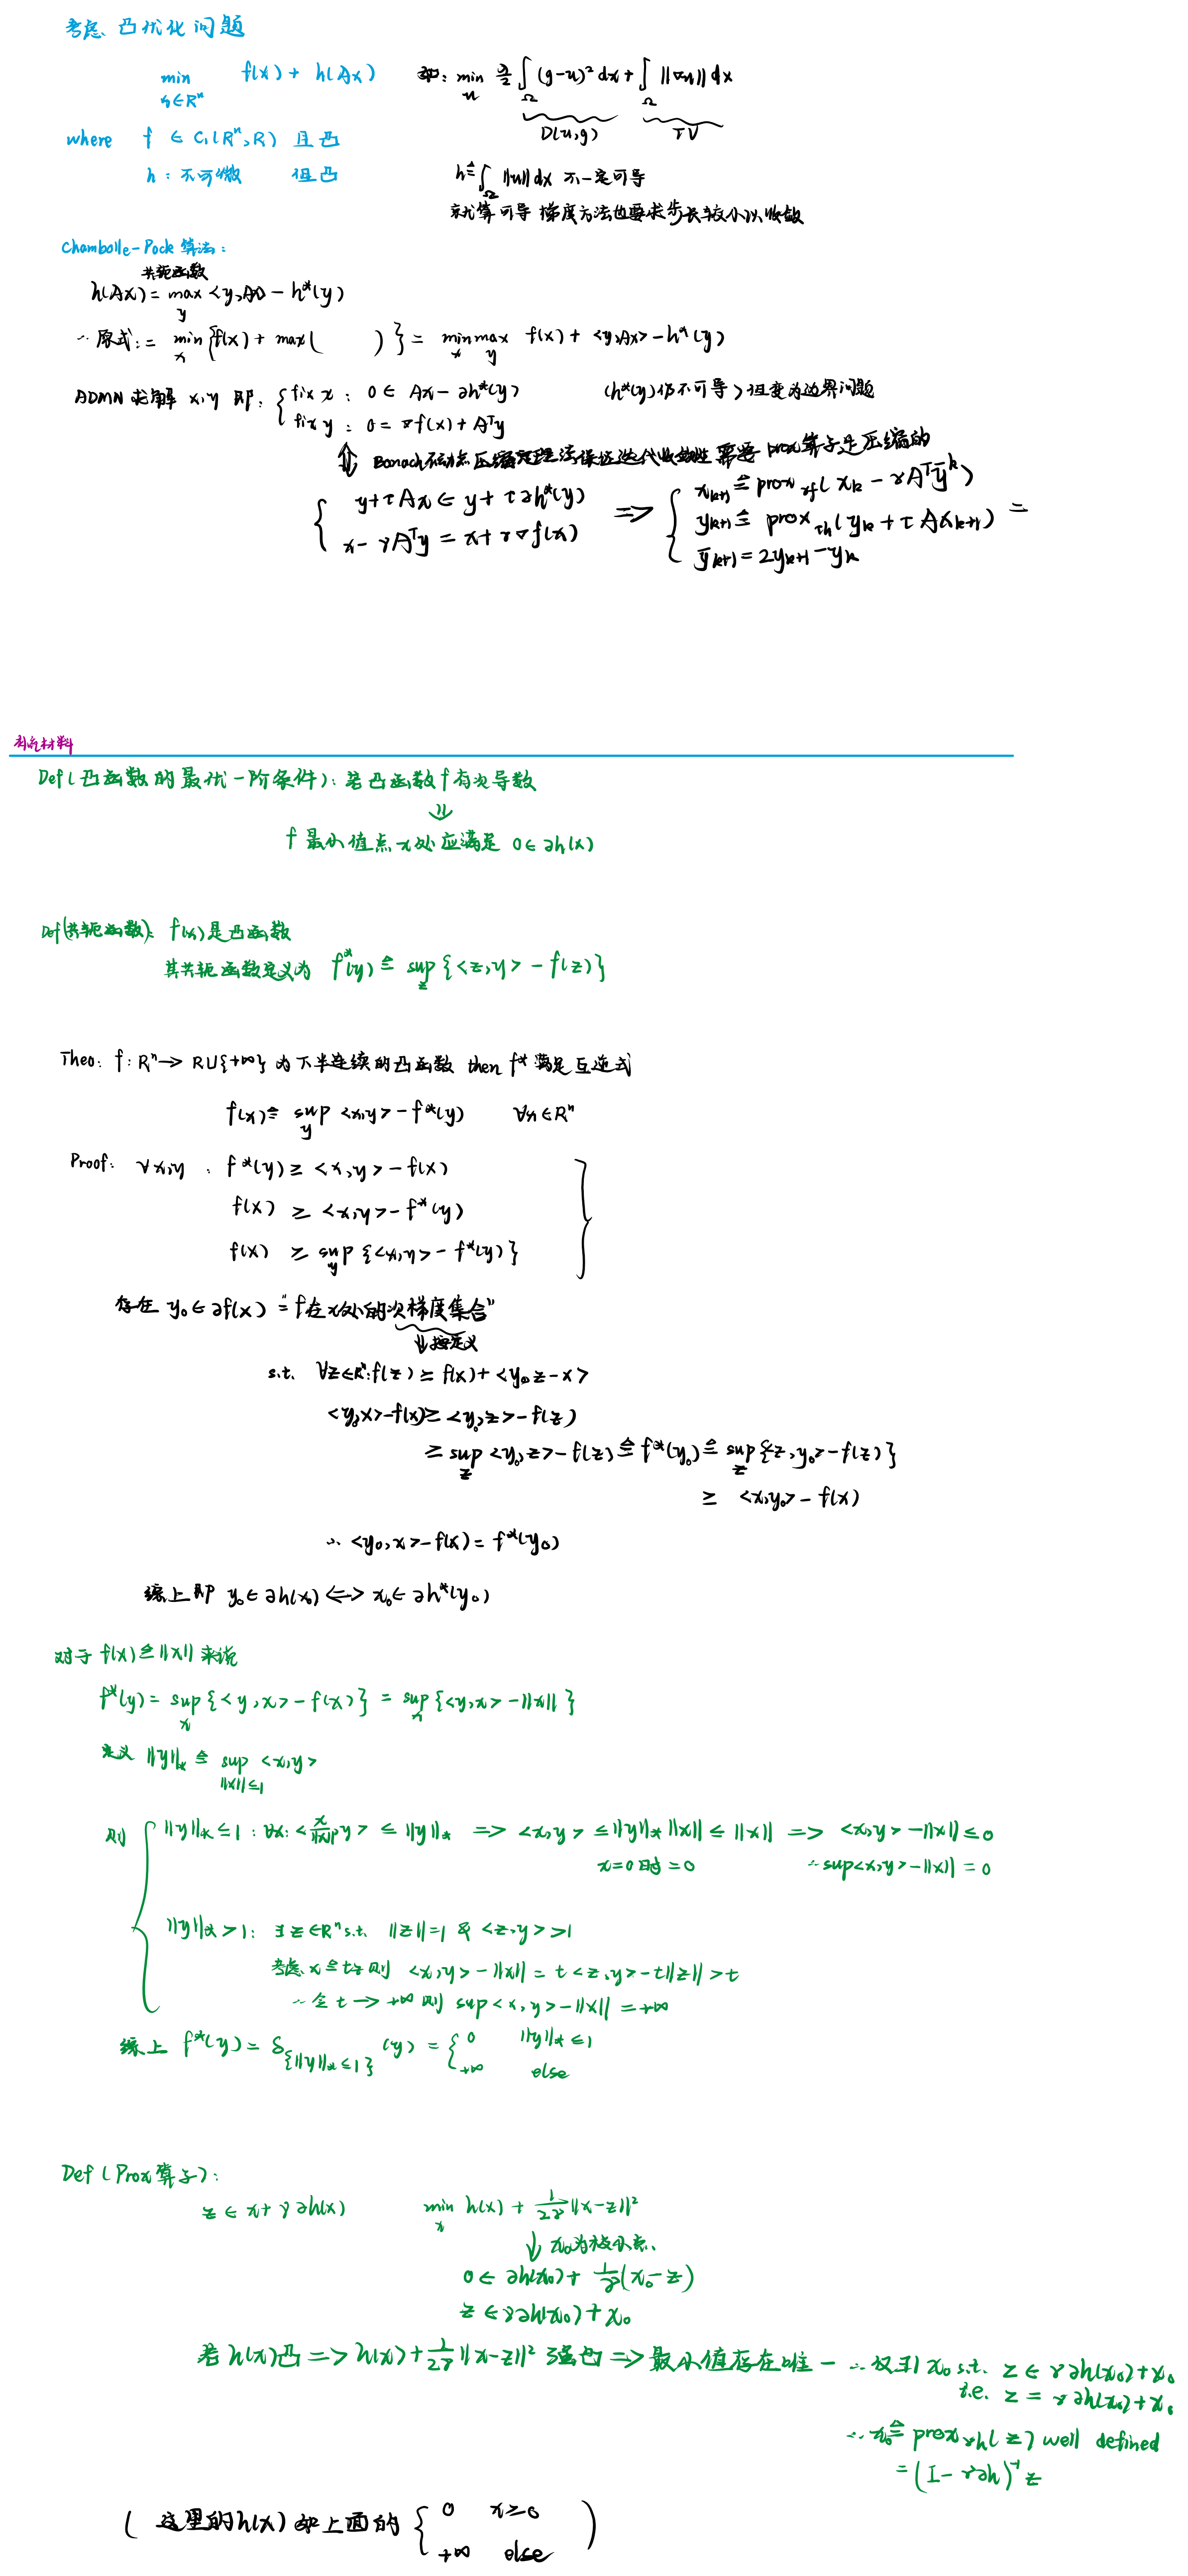 考虑 凸优化问题
min f(x) + h(Ax)
x∈Rⁿ
如: min_u λ/2 ∫_Ω (g-u)² dx + ∫_Ω ||∇u|| dx
D(u,g) TV
where f ∈ C₁(Rⁿ,R) 且凸
h : 不可微 但凸
h ≜ ∫_Ω ||u|| dx 不一定可导
就算可导 梯度方法也要求步长较小以收敛
Chambolle-Pock 算法:
共轭函数
h(Ax) = max_y <y,Ax> - h*(y)
∴ 原式: = min_x {f(x) + max( ) } = min_x max_y f(x) + <y,Ax> - h*(y)
ADMN 求解 x,y 即: { fix x : 0 ∈ Ax - ∂h*(y) (h*(y)仍不可导)但变为边界问题
fix y : 0 = ∇f(x) + Aᵀy
⇕ Banach不动点压缩定理 保证迭代收敛性 需要 prox算子是压缩的
{ y+τAx ∈ y+τ∂h*(y)
x-γAᵀy = x+γ∇f(x)
⇒ { x_{k+1} ≜ prox_{γf}(x_k - γAᵀȳ^k)
y_{k+1} ≜ prox_{τh}(y_k + τAx_{k+1}) =
ȳ_{k+1} = 2y_{k+1} - y_k
补充材料
Def(凸函数的最优一阶条件): 若凸函数f有次导数
⇓
f 最小值点x处应满足 0∈∂h(x)
Def(共轭函数): f(x)是凸函数
其共轭函数定义为 f*(y) ≜ sup_z {<z,y> - f(z)}
Theo: f: Rⁿ→R∪{+∞} 为下半连续的凸函数 then f* 满足互逆式
f(x) ≜ sup_y <x,y> - f*(y) ∀x∈Rⁿ
Proof: ∀x,y : f*(y) ≥ <x,y> - f(x)
f(x) ≥ <x,y> - f*(y)
f(x) ≥ sup_y {<x,y> - f*(y)}
存在 y₀∈∂f(x) = "f在x处的次梯度集合"
⇓按定义
s.t. ∀z∈Rⁿ: f(z) ≥ f(x) + <y₀,z-x>
<y₀,x> - f(x) ≥ <y₀,z> - f(z)
≥ sup_z <y₀,z> - f(z) ≜ f*(y₀) ≜ sup_z {<z,y₀> - f(z)}
≥ <x,y₀> - f(x)
∴ <y₀,x> - f(x) = f*(y₀)
综上即 y₀∈∂h(x₀) ⟺ x₀∈∂h*(y₀)
对于 f(x)≜||x|| 来说
f*(y) = sup_x {<y,x> - f(x)} = sup_x {<y,x> - ||x||}
定义 ||y||_* ≜ sup_{||x||≤1} <x,y>
则 { ||y||_* ≤1 : ∀x: <x/||x||,y> ≤ ||y||_* ⇒ <x,y> ≤ ||y||_* ||x|| ≤ ||x|| ⇒ <x,y> - ||x|| ≤ 0
x=0时=0 ∴ sup<x,y> - ||x|| = 0
||y||_* >1: ∃z∈Rⁿ s.t. ||z||=1 & <z,y> >1
考虑 x≜tz 则 <x,y> - ||x|| = t<z,y> - t||z|| > t
∴ 令 t→+∞ 则 sup<x,y> - ||x|| = +∞
综上 f*(y) = δ_{{||y||_*≤1}}(y) = { 0 ||y||_* ≤1
+∞ else
Def (Prox算子):
z ∈ x+γ∂h(x) min_x h(x) + 1/2γ ||x-z||²
↓ x₀为极小点.
0 ∈ ∂h(x₀) + 1/γ(x₀-z)
z ∈ γ∂h(x₀) + x₀
若 h(x)凸 ⇒ h(x) + 1/2γ ||x-z||² 强凸 ⇒ 最小值存在唯一 ∴ 仅∃1 x₀ s.t. z ∈ γ∂h(x₀)+x₀
i.e. z = γ∂h(x₀)+x₀
∴ x₀ ≜ prox_{γh}(z) well defined
= (I-γ∂h)⁻¹ z
( 这里的h(x) 如上面的 { 0 x≥0
+∞ else )